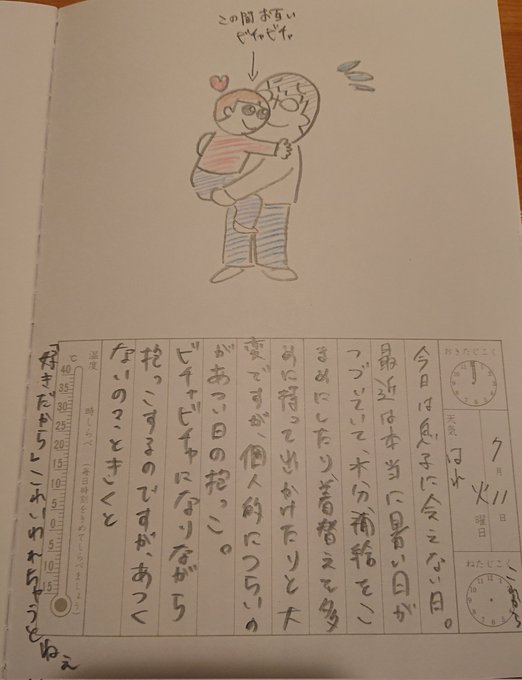 この間お互い
ビチャビチャ
おきたじこく
天気
はれ
7月11日
火曜日
ねたじこく
今日は息子に会えてない日。
最近は本当に暑い日が
つづいていて、水分補給をこ
まめにしたり、着替えを多
めに持って出かけたりと大
変ですが、個人的につらいの
があつい日の抱っこ。
ビチャビチャになりながら
抱っこするのですが、あつく
ないの?ときくと
温度 時しらべ（毎日時刻をきめてしらべましょう）
℃
40
35
30
25
20
15
10
5
0
5
10
15
「好きだから」とかいわれちゃうとねぇ